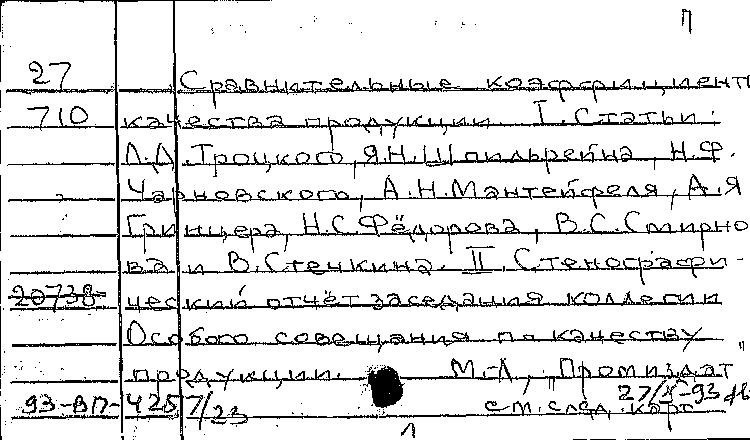 П
27 Сравнительные коэффициент
710 качества продукции. I. Статьи:
Л.Д. Троцкого, Я.Н. Шпильрейна, Н.Ф.
Чарновского, А.Н. Мантейфеля, А.Я
Гринцера, Н.С. Фёдорова, В.С. Смирно
ва и В. Стечкина. II. Стенографи-
20738 ческий отчёт заседания коллегии
Особого совещания по качеству
продукции. М-Л, "Промиздат"
93-ВП-425 7/23 см. след. карт